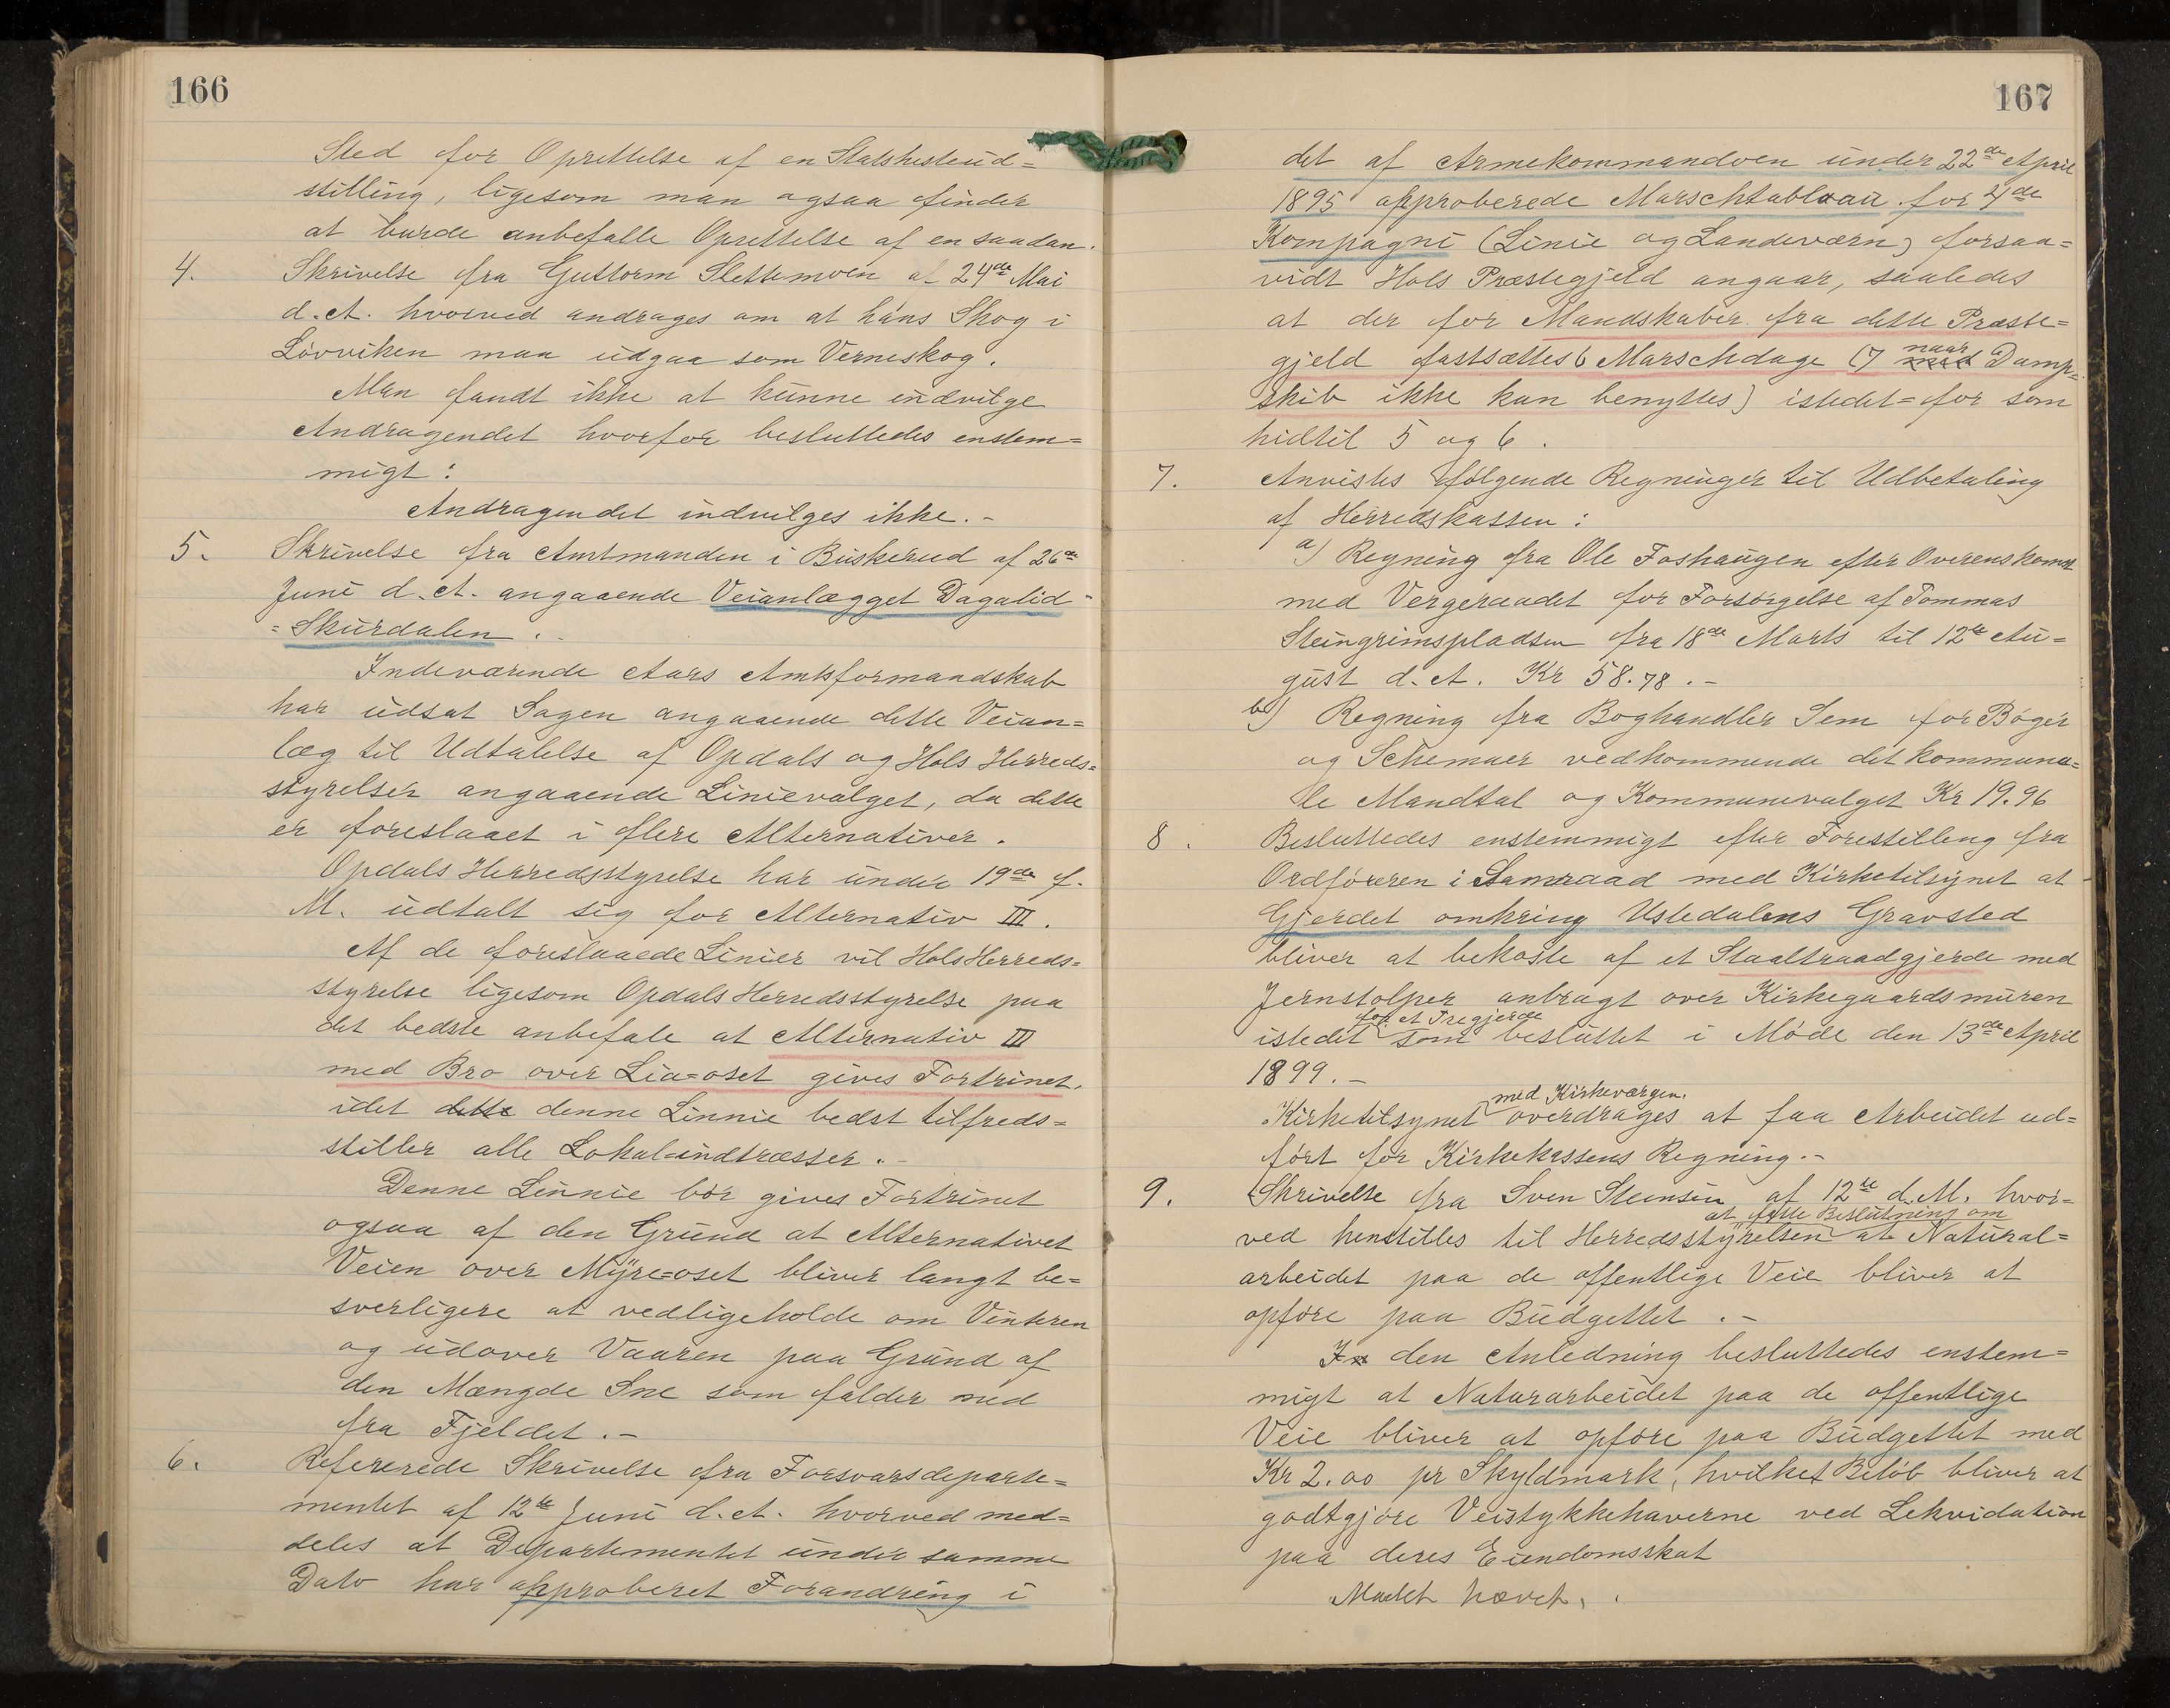 166
Sted for Oprettelse af en Statshesteud=
stilling, ligesom man ogsaa finder
at burde anbefalle Oprettelse af en saadan.
4. Skrivelse fra Guttorm Slettemoen af 24de Mai
d. A. hvorved andrages om at hans Skog i
Lövviken maa udgaa som Verneskog.
Man fandt ikke at kunne indvilge
Andragendet hvorfor besluttedes enstem=
migt:
Andragendet indvilges ikke.-
5. Skrivelse fra Amtmanden i Buskerud af 26de
Juni d. A. angaaende Veianlægget Dagalid-
=Skurdalen.-
Indeværende Aars Amtsformandskab
har udsat Sagen angaaende dette Veian=
læg til Udtalelse af Opdals og Hols Herreds=
styrelser angaaende Linievalget, da dette
er foreslaaet i flere Alternativer.
Opdals Herredsstyrelse har under 19de f.
M. udtalt sig for Alternativ III.
Af de foreslaaede Linier vil Hols Herreds=
styrelse ligesom Opdals Herredsstyrelse paa
det bedste anbefale at Alternativ III
med Bro over Lia=oset gives Fortrinet.
idet dette denne Linnie bedst tilfreds=
stiller alle Lokal=indtræsser.-
Denne Linnie bör gives Fortrinet
ogsaa af den Grund at Alternativet
Veien over Myre=oset bliver langt be=
sverligere at vedligeholde om Vinteren
og udover Vaaren paa Grund af
den Mængde Sne som falder ned
fra Fjeldet.-
6. Refererede Skrivelse fra Forsvarsdeparte=
mentet af 12te Juni d. A. hvorved med=
deles at Departementet under samme
Dato har approberet Forandring i
167
det af Armekommandoen under 22de April
1895 approberede Marschtableau for 4de
Kompagni (Linie og Landeværn) forsaa=
vidt Hols Præstegjeld angaar, saaledes
at der for Mandskaber fra dette Præste=
gjeld fastsættes 6 Marschdage (7 med naar Damp=
skib ikke kan benyttes) istedet=for som
hidtil 5 og 6.
7. Anvistes följgende Regninger til Udbetaling
af Herredskassen:
a) Regning fra Ole Foshaugen efter Overenskomst
med Vergeraadet for Forsörgelse af Tommas
Steingrimspladsen fra 18de Marts til 12te Au=
gust d. A. Kr 58.78.-
b) Regning fra Boghandler Sem for Böger
og Schemaer vedkommende det kommuna=
le Mandtal og Kommunevalget Kr 19.96
8. Besluttedes enstemmigt efter Forestilling fra
Ordföreren i Samraad med Kirketilsynet at
Gjerdet omkring Ustedalens Gravsted
bliver at bekoste af et Staaltraadgjerde med
Jernstolper anbragt over Kirkegaardsmuren
for et Tregjerde
istedet som besluttet i Möde den 13de April
1899.-
med Kirkeværgen.
Kirketilsynet overdrages at faa Arbeidet ud=
fört for Kirkekassens Regning.-
9. Skrivelse fra Sven Steinsen af 12te d. M. hvor=
at fatte Beslutning om
ved henstilles til Herredsstyrelsen at Natural=
arbeidet paa de offentlige Veie bliver at
opföre paa Budgettet.-
I den Anledning besluttedes enstem=
migt at Naturarbeidet paa de offentlige
Veie bliver at opföre paa Budgettet med
Kr 2.00 pr Skyldmark, hvilket Belöb bliver at
godtgjöre Veistykkehaverne ved Lekvidation
paa deres Eiendomsskat
Mödet hævet.